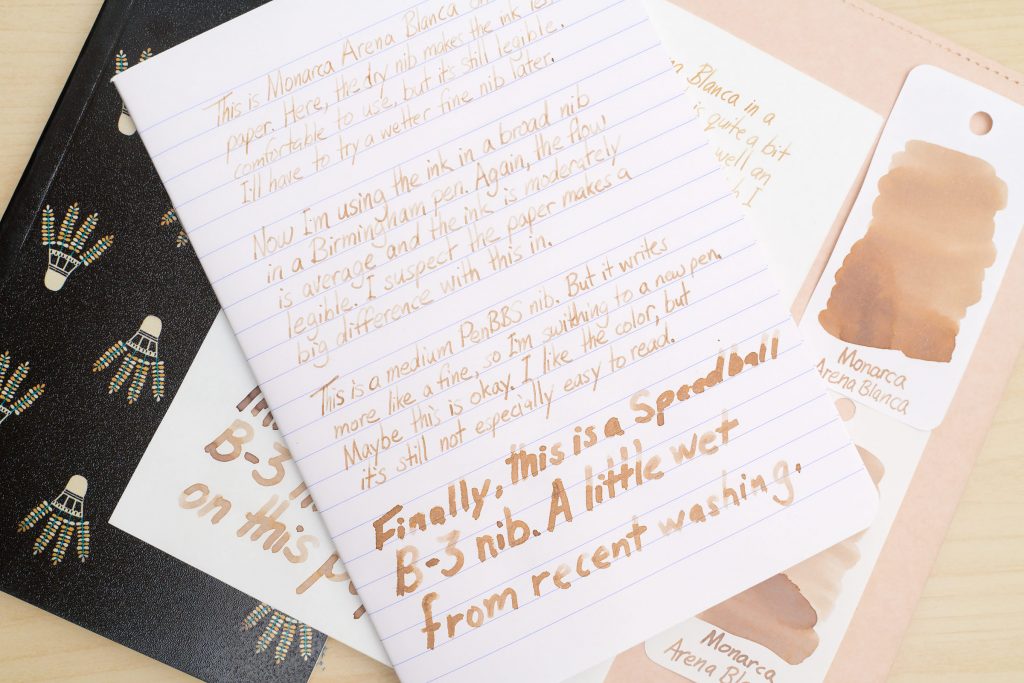 This is Monarca Arena Blanca on
paper. Here, the dry nib makes the ink less
comfortable to use, but it's still legible.
I'll have to try a wetter fine nib later.
Now I'm using the ink in a broad nib
in a Birmingham pen. Again, the flow
is average and the ink is moderately
legible. I suspect the paper makes a
big difference with this in.
This is a medium PenBBS nib. But it writes
more like a fine, so I'm swithing to a new pen.
Maybe this is okay. I like the color, but
it's still not especially easy to read.
Finally, this is a Speedball
B-3 nib. A little wet
from recent washing.
B-3
on this
Blanca in a
is quite a bit
well an
I
Monarca
Arena Blanca
Monarca
Arena